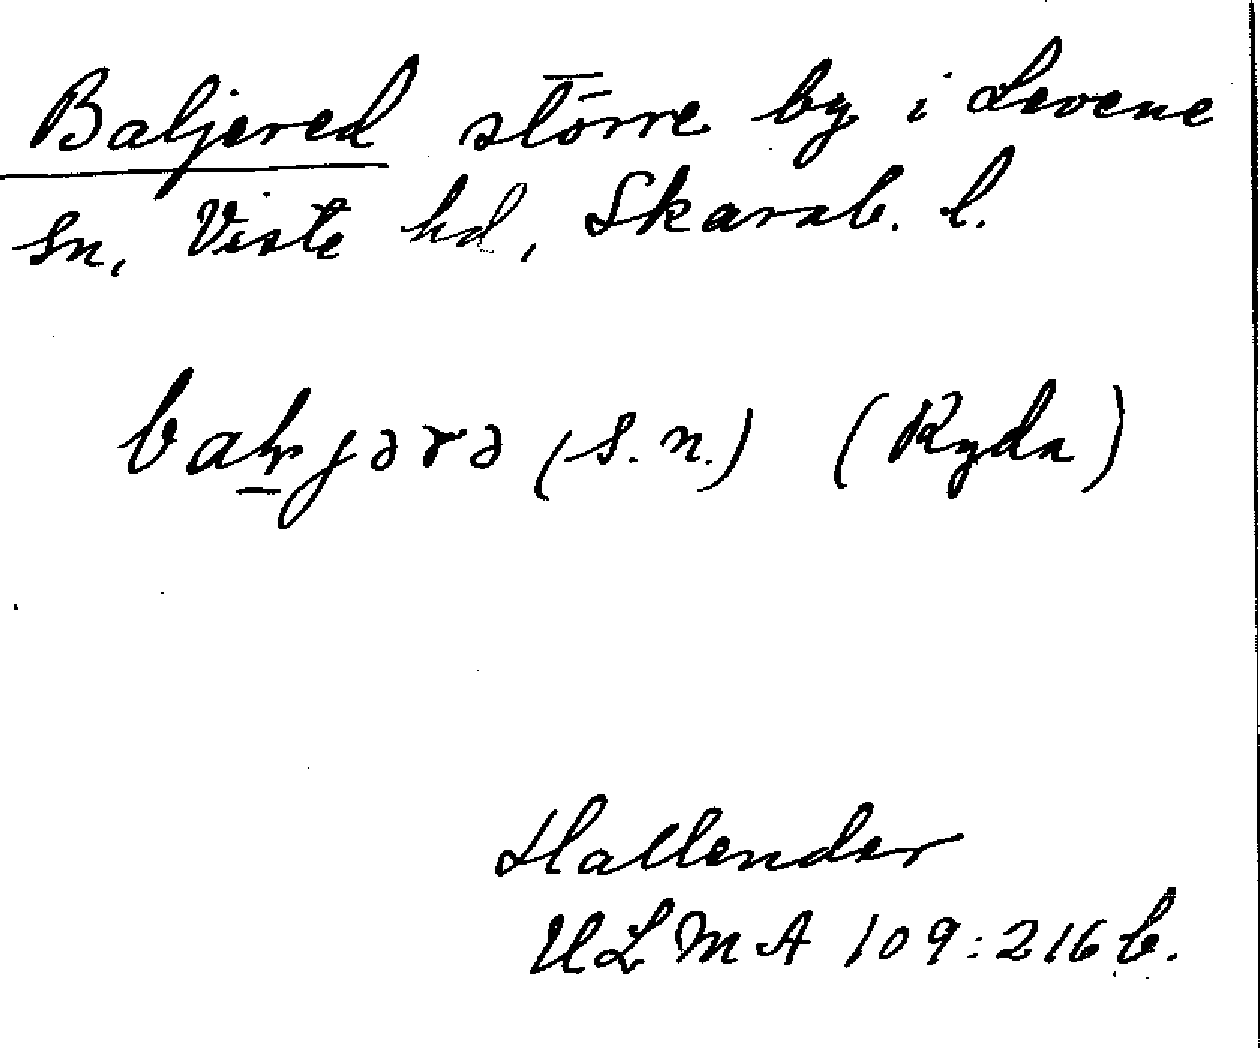 Baljered större by i Levene
sn, Viste hd, Skarab. l.
(s.n.) (Ryda)
Hallender
ULMA 109:216 b.